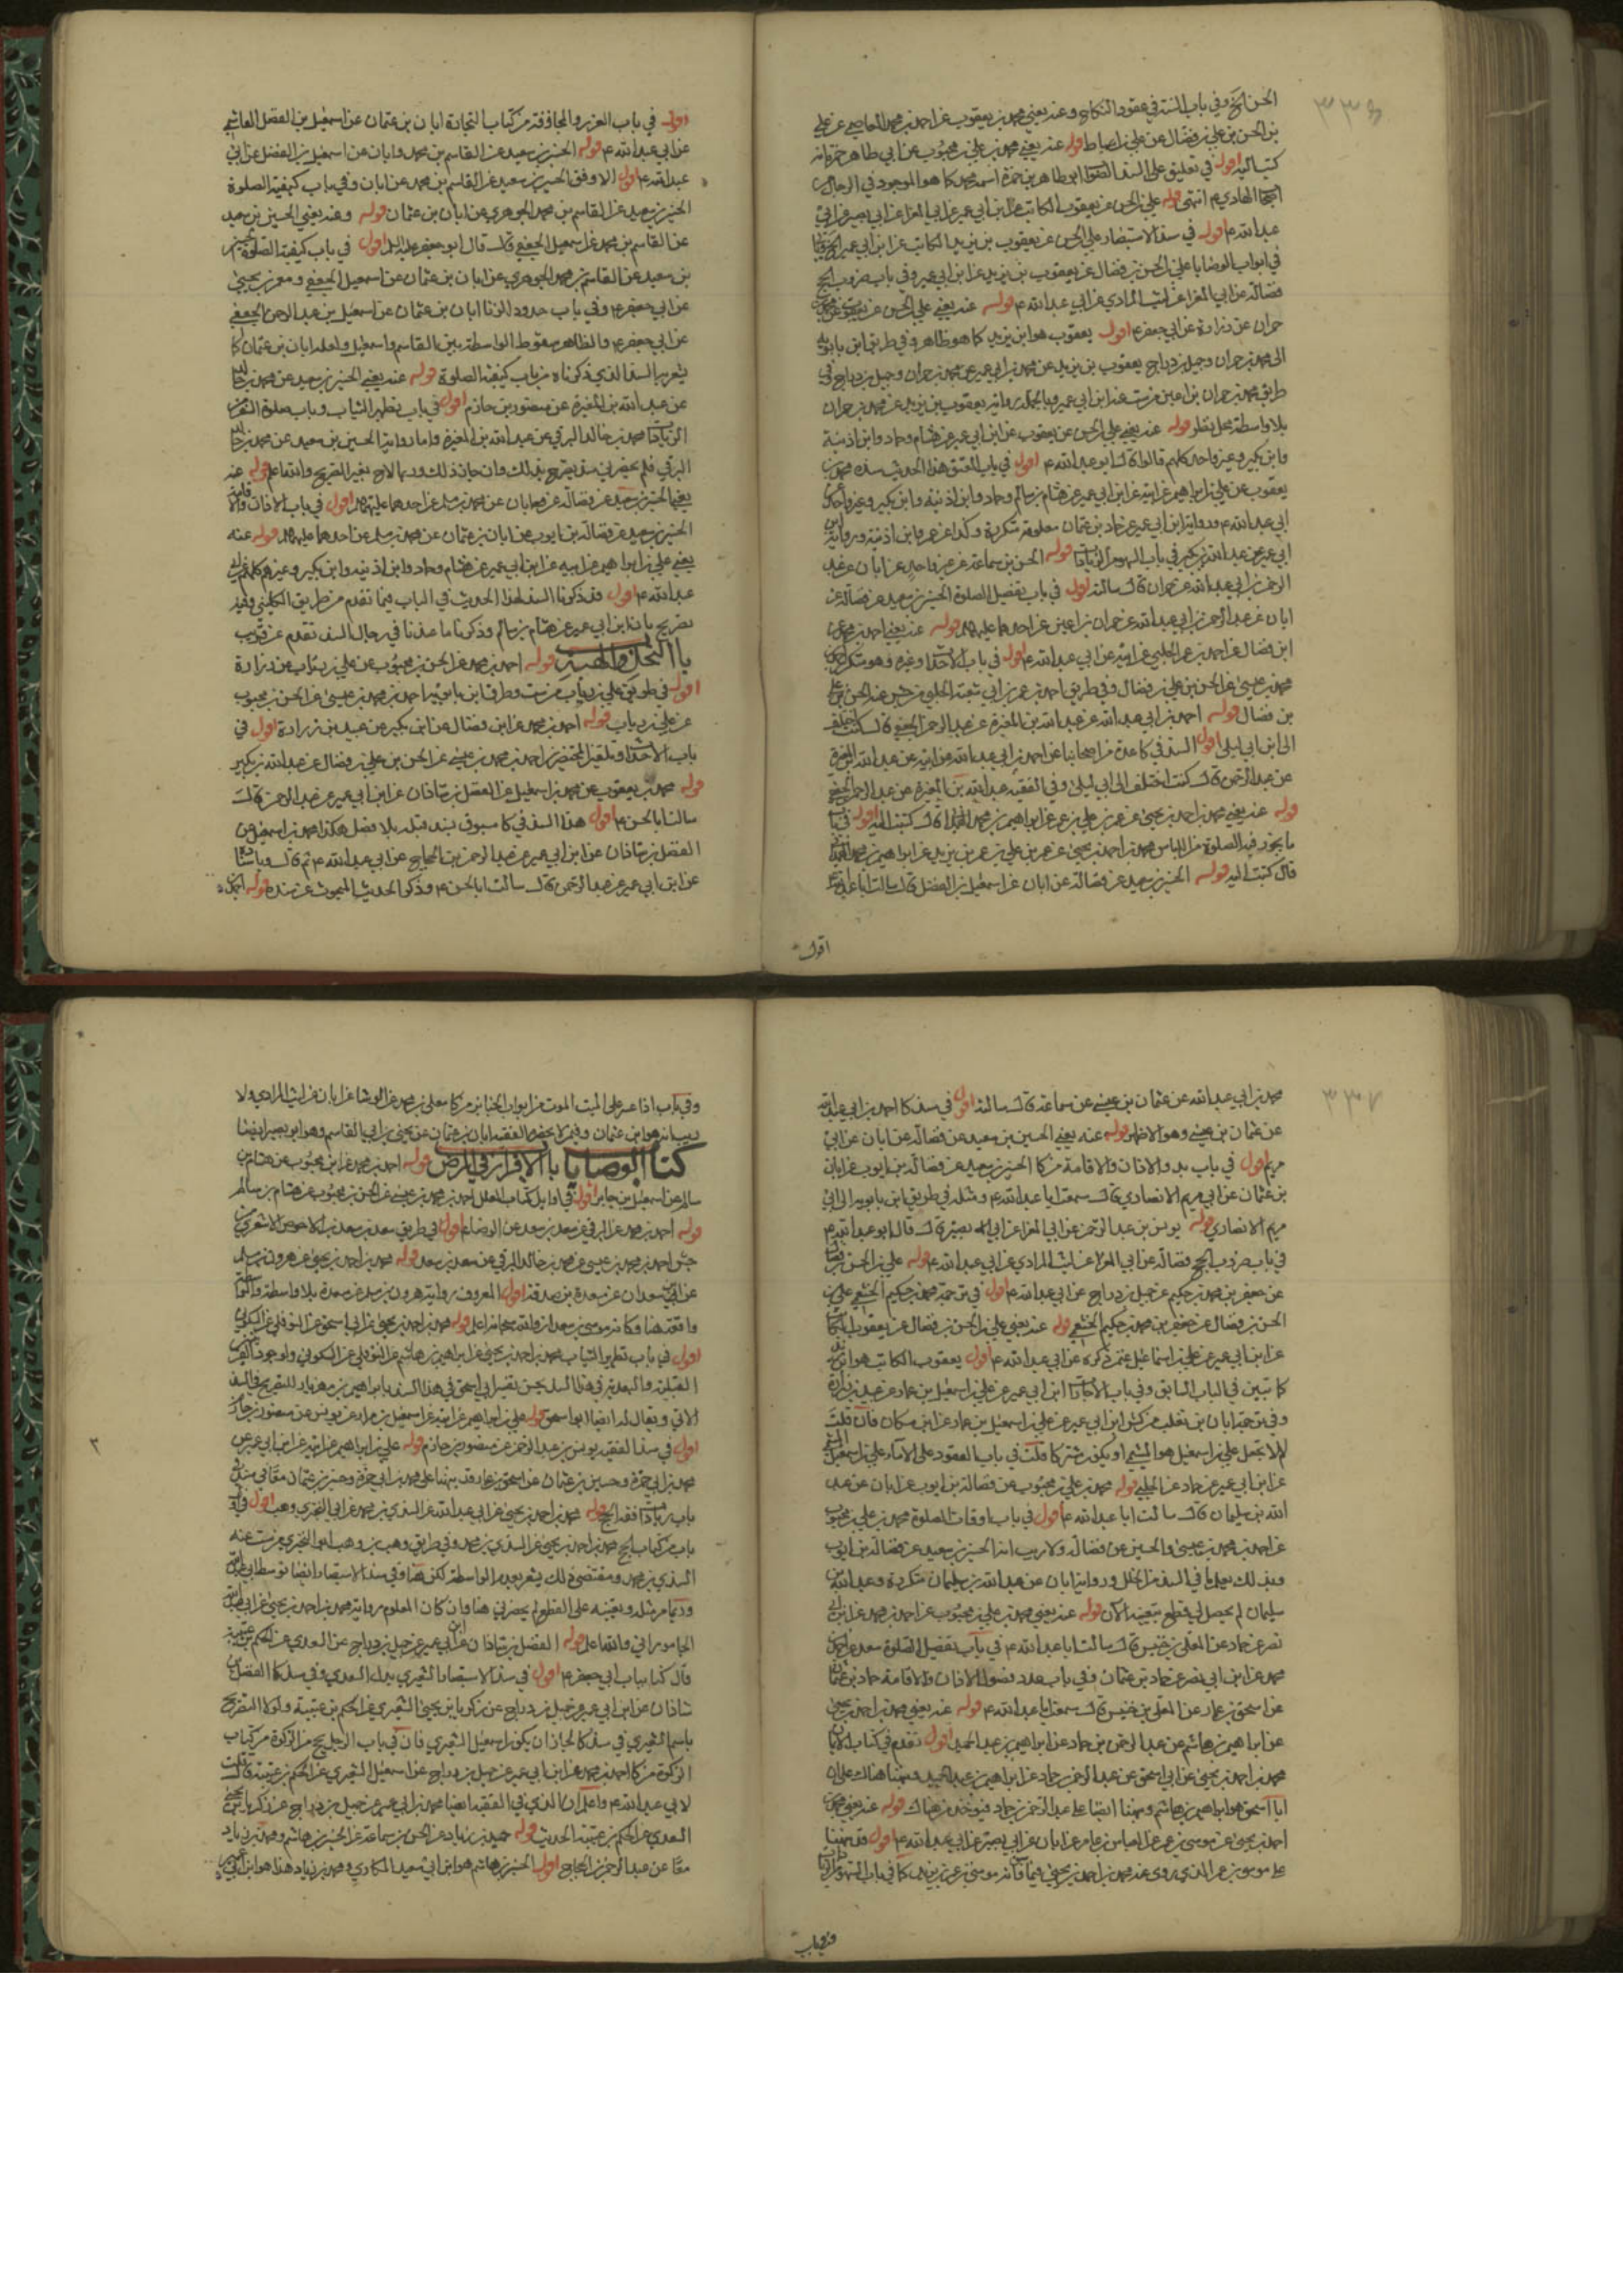 ٣٣٦
الحسن الخ وفي باب السنة في عقود النكاح وعنه يعني محمد بن يعقوب عن احمد بن محمد العاصمي عن علي
بن الحسن بن علي بن فضال عن علي بن اسباط قوله عنه يعني محمد بن علي بن محبوب عن ابي طاهر بن حمزة انه
كتب اليه اقول في تعليق على السند ابو طاهر بن حمزة اسمه محمد كما هو الموجود في الرجال من
اصحاب الهادي ع انتهى قوله علي بن الحسن عن يعقوب الكاتب عن ابن ابي عمير عن ابي المغرا عن ابي بصير عن ابي
عبد الله ع اقول في سند الاستبصار علي بن الحسن عن يعقوب بن يزيد الكاتب عن ابن ابي عمير
في ابواب الوصايا علي بن الحسن بن فضال عن يعقوب بن يزيد عن ابن ابي عمير وفي باب ضروب الحج
فضالة عن ابي المغرا عن ليث المرادي عن ابي عبد الله ع قوله عنه يعني علي بن الحسن عن يعقوب عن محمد بن
حمران عن زرارة عن ابي جعفر ع اقول يعقوب هو ابن يزيد كما هو ظاهر وفي طريق ابن بابويه
الى محمد بن حمران وجميل بن دراج يعقوب بن يزيد عن محمد بن ابي عمير عن محمد بن حمران وجميل بن دراج وفي
طريق محمد بن حمران بن اعين مرت عن ابن ابي عمير وبالجملة رواية يعقوب بن يزيد عن محمد بن حمران
بلا واسطة محل نظر قوله عنه يعني علي بن الحسن عن يعقوب عن ابن ابي عمير عن هشام وحماد وابن اذينة
وابن بكير وغير واحد كلهم قالوا قال ابو عبد الله ع اقول في باب العتق هذا الحديث سنده محمد بن
يعقوب عن علي بن ابراهيم عن ابيه عن ابن ابي عمير عن هشام بن سالم وحماد وابن اذينة وابن بكير وغير واحد عن
ابي عبد الله ع ورواية ابن ابي عمير عن حماد بن عثمان معلومة متكررة وكذا عن عمر بن اذينة ورواية ابن
ابي عمير عن عبد الله بن بكير في باب السهو من الزيادات قوله الحسن بن سماعة عن غير واحد عن ابان عن عبد
الرحمن بن ابي عبد الله عن حمران قال سالته اقول في باب تفصيل الصلوة الحسين بن سعيد عن فضالة عن
ابان عن عبد الرحمن بن ابي عبد الله عن حمران بن اعين عن احدهما عليهما السلم قوله عنه يعني احمد بن محمد عن
ابن فضال عن احمد بن عمر الحلبي عن ابيه عن ابي عبد الله ع اقول في باب الاحداث وغيره وهو متكرر احمد بن
محمد بن عيسى عن الحسن بن علي بن فضال وفي طريق احمد بن عمر بن ابي شعبة الحلبي مر حسن عنه الحسن بن علي
بن فضال قوله احمد بن ابي عبد الله عن عبد الله بن المغيرة عن عبد الرحمن الجعفي قال كنت اختلف
الى ابن ابي ليلى اقول السند في كا عدة من اصحابنا عن احمد بن ابي عبد الله عن ابيه عن عبد الله بن المغيرة
عن عبد الرحمن قال كنت اختلف الى ابي ليلى وفي الفقيه عبد الله بن المغيرة عن عبد الرحمن الجعفي
قوله عنه يعني محمد بن احمد بن يحيى عن عمر بن علي بن عمر عن ابراهيم بن محمد الهمداني قال كتبت اليه اقول في باب
ما يجوز فيه الصلوة من اللباس محمد بن احمد بن يحيى عن عمر بن علي بن عمر بن يزيد عن ابراهيم بن محمد الهمداني
قال كتبت اليه قوله الحسين بن سعيد عن فضالة عن ابان عن اسمعيل بن الفضل قال سالت ابا عبد الله ع
اقول
اقول في باب الغرر والمجازفة من كتاب التجارة ابان بن عثمان عن اسمعيل بن الفضل الهاشمي
عن ابي عبد الله ع قوله الحسين بن سعيد عن القاسم بن محمد وابان عن اسمعيل بن الفضل عن ابي
عبد الله ع اقول الاوفق الحسين بن سعيد عن القاسم بن محمد عن ابان وفي باب كيفية الصلوة
الحسين بن سعيد عن القاسم بن محمد الجوهري عن ابان بن عثمان قوله وعنه يعني الحسين بن سعيد
عن القاسم بن محمد عن اسمعيل الجعفي قال قال ابو جعفر عليه السلم اقول في باب كيفية الصلوة الحسين
بن سعيد عن القاسم بن محمد الجوهري عن ابان بن عثمان عن اسمعيل الجعفي ومعمر بن يحيى
عن ابي جعفر ع وفي باب حدود الزنا ابان بن عثمان عن اسمعيل بن عبد الرحمن الجعفي
عن ابي جعفر ع والظاهر سقوط الواسطة بين القاسم واسمعيل ولعله ابان بن عثمان كما
يشعر به السند الذي ذكرناه من باب كيفية الصلوة قوله عنه يعني الحسين بن سعيد عن محمد بن خالد
عن عبد الله بن المغيرة عن منصور بن حازم اقول في باب تطهير الثياب وباب صلوة السفر من
الزيادات محمد بن خالد البرقي عن عبد الله بن المغيرة واما رواية الحسين بن سعيد عن محمد بن خالد
البرقي فلم يحضرني سند يصرح بذلك وان جاز ذلك وربما لاح بغير التصريح والله اعلم قوله عنه
يعني الحسين بن سعيد عن فضالة عن ابان عن محمد بن مسلم عن احدهما عليهما السلم اقول في باب الاذان والاقامة
الحسين بن سعيد عن فضالة بن ايوب عن ابان بن عثمان عن محمد بن مسلم عن احدهما عليهما السلم قوله عنه
يعني علي بن ابراهيم عن ابيه عن ابن ابي عمير عن هشام وحماد وابن اذينه وابن بكير وغيرهم كلهم عن ابي
عبد الله ع اقول قد ذكرنا السند لهذا الحديث في الباب فيما تقدم من طريق الكليني وفيه
تصريح بان ابن ابي عمير عن هشام بن سالم وذكرنا ما عندنا في رجال السند تقدم عن قريب
باب النحل والهبة قوله احمد بن محمد عن الحسن بن محبوب عن علي بن رئاب عن زرارة
اقول في طريق علي بن رئاب مرت وطرق ابن بابويه احمد بن محمد بن عيسى عن الحسن بن محبوب
عن علي بن رئاب قوله احمد بن محمد عن ابن فضال عن ابن بكير عن عبيد بن زرارة اقول في
باب الاحداث وتلقين المحتضرين احمد بن محمد بن عيسى عن الحسن بن علي بن فضال عن عبد الله بن بكير
قوله محمد بن يعقوب عن محمد بن اسمعيل عن الفضل بن شاذان عن ابن ابي عمير عن عبد الرحمن قال
سالت ابا الحسن ع اقول هذا السند في كا مسبوق بسند قبله بلا فصل هكذا محمد بن اسمعيل عن
الفضل بن شاذان عن ابن ابي عمير عن عبد الرحمن بن الحجاج عن ابي عبد الله ع ثم قال وباسناده
عن ابن ابي عمير عن عبد الرحمن قال سالت ابا الحسن ع وذكر الحديث المبحوث عن سنده قوله احمد بن
٣٣٧
محمد بن ابي عبد الله عن عثمان بن عيسى عن سماعة قال سالته اقول في سند كا احمد بن ابي عبد الله
عن عثمان بن عيسى وهو الاظهر قوله عنه يعني الحسين بن سعيد عن فضالة عن ابان عن ابي
مريم اقول في باب بدو الاذان والاقامة من كا الحسين بن سعيد عن فضالة بن ايوب عن ابان
بن عثمان عن ابي مريم الانصاري قال سمعت ابا عبد الله ع ومثله في طريق ابن بابويه الى ابي
مريم الانصاري قوله يونس بن عبد الرحمن عن ابي المغرا عن ابي بصير قال قال ابو عبد الله ع
في باب ضروب الحج فضالة عن ابي المغرا عن ليث المرادي عن ابي عبد الله ع قوله علي بن الحسن بن فضال
عن جعفر بن محمد بن حكيم عن جميل بن دراج عن ابي عبد الله ع اقول في ترجمة محمد بن حكيم الخثعمي علي بن
الحسن بن فضال عن جعفر بن محمد بن حكيم الخثعمي قوله عنه يعني علي بن الحسن بن فضال عن يعقوب الكاتب
عن ابن ابي عمير عن علي بن اسماعيل عمن ذكره عن ابي عبد الله ع اقول يعقوب الكاتب هو ابن يزيد
كما تبين في الباب السابق وفي باب الاجارات ابن ابي عمير عن علي بن اسمعيل بن عمار عن عبيد بن زرارة
وفي ترجمة ابان بن تغلب من كش ابن ابي عمير عن علي بن اسمعيل بن عمار عن ابن مسكان فان قلت
لم لا تجعل علي بن اسمعيل هو الميثمي او يكون مشتركا قلت في باب العقود على الاماء علي بن اسمعيل الميثمي
عن ابن ابي عمير عن حماد عن الحلبي قوله محمد بن علي بن محبوب عن فضالة بن ايوب عن ابان عن عبد
الله بن سليمان قال سالت ابا عبد الله ع اقول في باب اوقات الصلوة محمد بن علي بن محبوب
عن احمد بن محمد بن عيسى والحسين عن فضالة ولا ريب انه الحسين بن سعيد عن فضالة بن ايوب
وبذلك يعلم ما في السند من الخلل ورواية ابان عن عبد الله بن سليمان متكررة وعبد الله بن
سليمان لم يحصل لي قطع بتعينه الآن قوله عنه يعني محمد بن علي بن محبوب عن احمد بن محمد عن ابن ابي
نصر عن حماد عن المعلى بن خنيس قال سالت ابا عبد الله ع في باب تفصيل الصلوة سعد عن احمد بن
محمد عن ابن ابي نصر عن حماد بن عثمان وفي باب عدد فصول الاذان والاقامة حماد بن عثمان
عن اسحق بن عمار عن المعلى بن خنيس قال سمعت ابا عبد الله ع قوله عنه يعني محمد بن احمد بن يحيى
عن ابراهيم بن هاشم عن عبد الرحمن بن حماد عن ابراهيم بن عبد الحميد اقول تقدم في كتاب
محمد بن احمد بن يحيى عن ابي اسحق عن عبد الرحمن بن حماد عن ابراهيم بن عبد الحميد ونبهنا هناك على ان
ابا اسحق هو ابراهيم بن هاشم ونبهنا ايضا على عبد الرحمن بن حماد فيؤخذ من هناك قوله عنه يعني محمد بن
احمد بن يحيى عن موسى بن عمر عن العباس بن عامر عن ابان عن ابي بصير عن ابي عبد الله ع اقول قد نبهنا
على موسى بن عمر الذي يروي عنه محمد بن احمد بن يحيى فيما فات انه موسى بن عمر بن يزيد كما في باب السهو من الزيادات
وفي باب
وفي باب اذا عسر على الميت الموت من ابواب الجنائز من كا معلى بن محمد عن الوشا عن ابان عن ليث المرادي ولا
ريب انه هو ابن عثمان وفيمن لا يحضره الفقيه ابان بن عثمان عن يحيى بن ابي القاسم وهو ابو بصير ايضا
كتاب الوصايا باب الاقرار في المرض قوله احمد بن محمد عن ابن محبوب عن هشام بن
سالم عن اسمعيل بن جابر اقول في اوايل كتاب العلل احمد بن محمد بن عيسى عن الحسن بن محبوب عن هشام بن سالم
قوله احمد بن محمد عن البرقي عن سعد بن سعد عن الرضا ع اقول في طريق سعد بن سعد بن الاحوص الاشعري
جش احمد بن محمد بن عيسى عن محمد بن خالد البرقي عن سعد بن سعد قوله محمد بن احمد بن يحيى عن هرون بن مسلم
عن ابن سعدان عن مسعدة بن صدقة اقول المعروف رواية هرون بن مسلم عن مسعدة بلا واسطة
واقعة هنا وكانه موسى بن سعدان والله سبحانه اعلم قوله محمد بن احمد بن يحيى عن ابي اسحق عن النوفلي عن السكوني
اقول في باب تطهير الثياب محمد بن احمد بن يحيى عن ابراهيم بن هاشم عن النوفلي عن السكوني ولوجود القرب
القبلية والبعدية في هذا السند يحسن تفسير ابي اسحق في هذا السند بابراهيم بن مهزيار للتصريح في السند
الآتي ويقال له ايضا ابو اسحق قوله علي بن ابراهيم عن ابيه عن اسمعيل بن مرار عن يونس عن منصور بن حازم
اقول في سند الفقيه يونس بن عبد الرحمن عن منصور بن حازم قوله علي بن ابراهيم عن ابيه عن ابن ابي عمير عن
محمد بن ابي حمزة وحسين بن عثمان عن اسحق بن عمار قد نبهنا على محمد بن ابي حمزة وحسين بن عثمان معا في سند
باب زيادات فقه الحج قوله محمد بن احمد بن يحيى عن ابي عبد الله عن السندي بن محمد عن ابي البختري وهب اقول في
باب من كتاب الحج محمد بن احمد بن يحيى عن السندي بن محمد وفي طريق وهب بن وهب ابي البختري مرت عنه
السندي بن محمد ومقتضى ذلك يشعر بعدم الواسطة لكن هنا وفي سند الاستبصار ايضا توسط ابي عبد الله
وربما مر مثله ويعينه على القطع لم يحضرني هنا وان كان المعلوم رواية محمد بن احمد بن يحيى عن ابي عبد الله
الجاموراني والله اعلم قوله الفضل بن شاذان عن ابن ابي عمير عن جميل بن دراج عن السعدي عن الحكم بن عتيبة
قال كنا بباب ابي جعفر ع اقول في سند الاستبصار الشعيري بدل السعدي وفي سند كا الفضل بن
شاذان عن ابن ابي عمير عن جميل بن دراج عن زكريا بن يحيى الشعيري عن الحكم بن عتيبة ولولا التصريح
باسم الشعيري في سند كا لجاز ان يكون اسمعيل الشعيري فان في باب الرجل يحج من الزكوة من كتاب
الزكوة من كا احمد بن محمد عن ابن ابي عمير عن جميل بن دراج عن اسمعيل الشعيري عن الحكم بن عتيبة قال قلت
لابي عبد الله ع واعلم ان الذي في الفقيه ايضا محمد بن ابي عمير عن جميل بن دراج عن زكريا بن يحيى
السعدي عن الحكم بن عتيبة الحديث قوله حميد بن زياد عن الحسن بن سماعة عن الحسين بن هاشم ومحمد بن زياد
معا عن عبد الرحمن بن الحجاج اقول الحسين بن هاشم هو ابن ابي سعيد المكاري ومحمد بن زياد هذا هو ابن ابي عمير
٢